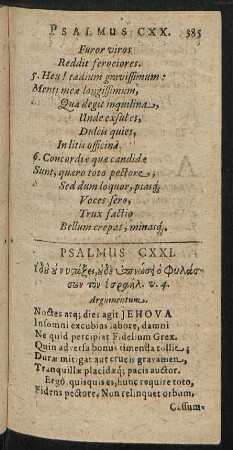 PSALMUS CXX. 385
Furor viros
Reddit ferociores.
5. Heu! tædium gravissimum:
Menti meæ longissimum,
Qua degit inquilina,
Unde exsules,
Dulcis quies,
In litis officina.
6. Concordiæ quæ candidæ
Sunt, quero toto pectore;
Sed dum loquor, piasq;
Voces sero,
Trux factio
Bellum crepat, minasq;.
PSALMUS CXXI.
ὁ Φυλάσ-
σων τὸν Ισραήλ. v. 4.
Argumentum.
Noctes atq; dies agit JEHOVA
Insomni excubias labore, damni
Ne quid percipiat Fidelium Grex.
Quin adversa bonus timenda tollit;
Duræ mitigat aut crucis gravamen,
Tranquillæ placidæq; pacis auctor.
Ergò, quisquis es, hunc require toto,
Fidens pectore, Non relinquet orbum,
Cassum-